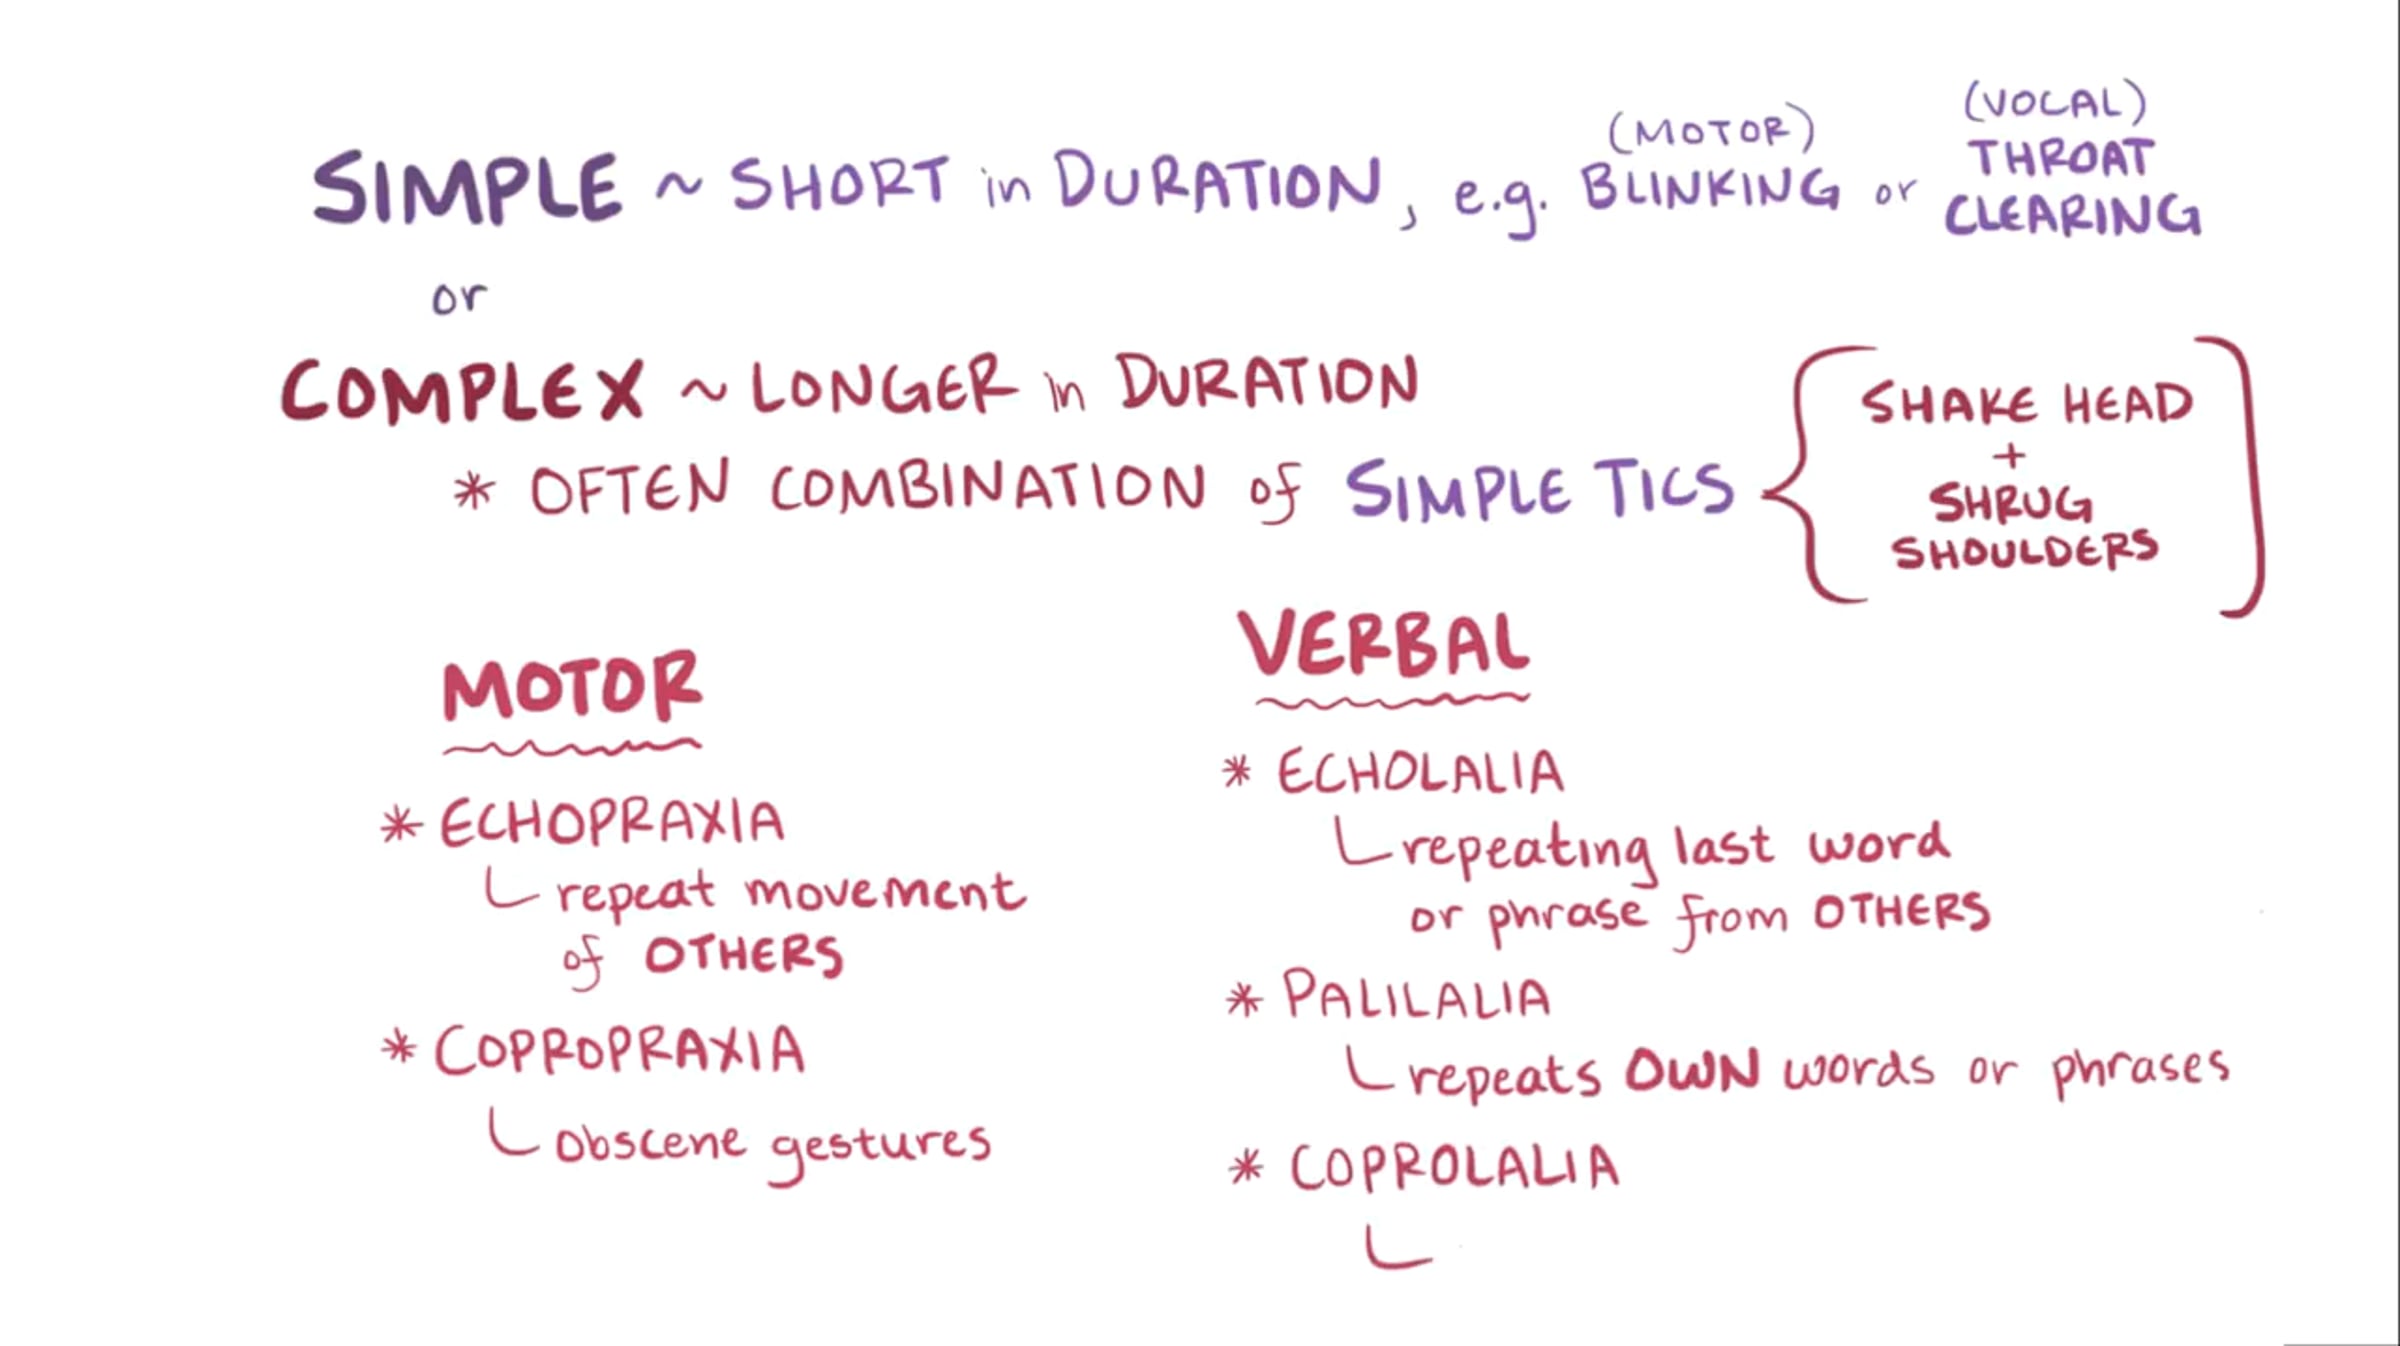 (MOTOR)
(VOCAL)
SIMPLE ~ SHORT in DURATION, e.g. BLINKING or THROAT CLEARING
or
COMPLEX ~ LONGER in DURATION
* OFTEN COMBINATION of SIMPLE TICS
SHAKE HEAD
+
SHRUG
SHOULDERS
MOTOR
* ECHOPRAXIA
repeat movement
of OTHERS
* COPROPRAXIA
obscene gestures
VERBAL
* ECHOLALIA
repeating last word
or phrase from OTHERS
* PALILALIA
repeats OWN words or phrases
* COPROLALIA